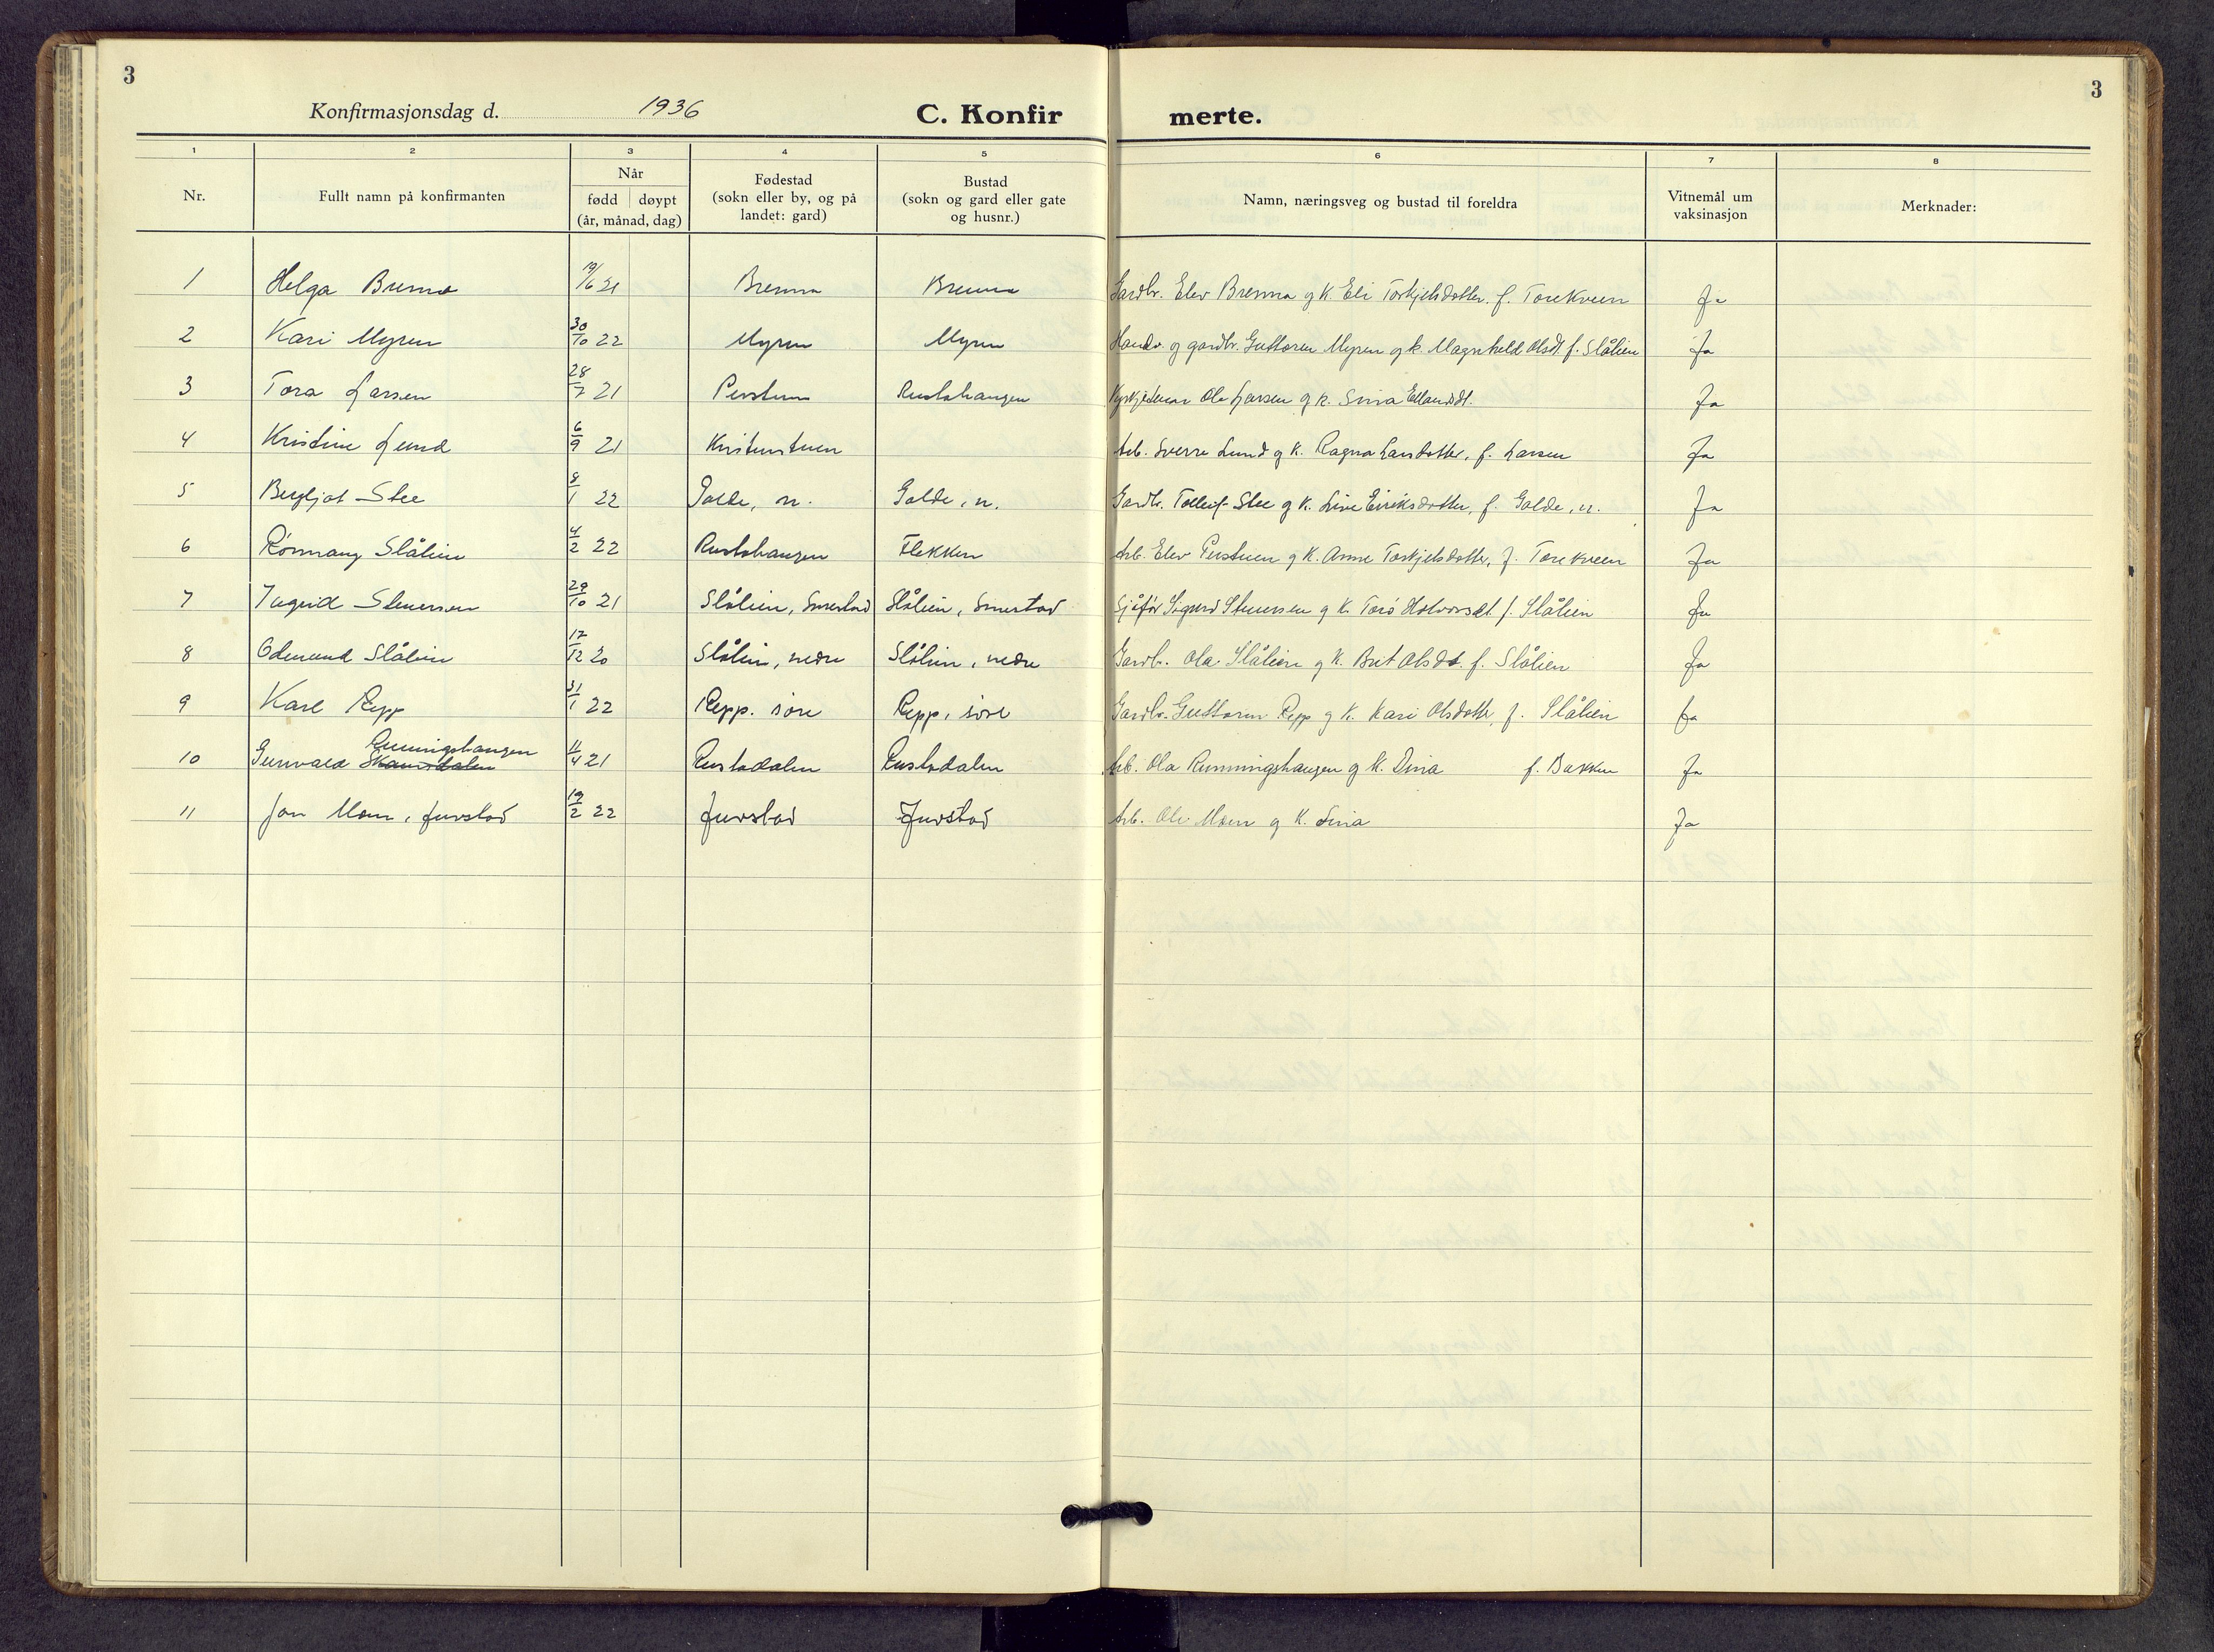 3
3
Konfirmasjonsdag d. 1936
C. Konfirmerte.
1 2 3 4 5 6 7 8
Nr. Fullt namn på konfirmanten Når fødd døypt (år, månad, dag) Fødestad (sokn eller by, og på landet: gard) Bustad (sokn og gard eller gate og husnr.) Namn, næringsveg og bustad til foreldra Vitnemål um vaksinasjon Merknader:
1 Helga Brenna 19/6 21 Brenna Brenna Gardbr. Elev Brenna og k. Eli Torkjelsdotter. f. Torekveen Ja
2 Kari Myren 30/10 22 Myren Myren Handv. og gardbr. Guttorm Myren og k. Magnhild Olsdt f. Slålien Ja
3 Tora Larsen 28/7 21 Perstuen Rustehaugen Kyrkjetenar Ola Larsen og k. Sina Ellandsdt. Ja
4 Kristine Lund 6/9 21 Kristenstuen Arb. Sverre Lund og k. Ragna Larsdotter, f. Larsen Ja
5 Bergljot Slee 8/1 22 Galde, n. Galde, n. Gardb. Tolleif Slee og k. Live Eiriksdotter, f. Galde, n. Ja
6 Rønnaug Slålien 4/2 22 Rustehaugen Flekken Arb. Elev Perstuen og k. Anne Torkjelsdotter, f. Torekveen Ja
7 Ingrid Stenersen 29/10 21 Slålien, Smestad Slålien, Smestad Sjåfør Sigurd Stenersen og k. Toro Halvorsdt. f. Slålien Ja
8 Odmund Slålien 17/12 20 Slålien, nedre Slålien, nedre Gardb. Ola Slålien og k. Brit Olsdt. f. Slålien Ja
9 Karl Repp 31/1 22 Repp. søre Repp, søre Gardb. Guttorm Repp og k. Kari Olsdotter, f. Slålien Ja
Runningshaugen
10 Gunvald Skamsdalen 11/4 21 Rustadalen Rustadalen Arb. Ola Runningshaugen og k. Dina f. Bakken Ja
11 Jan Moen, Juvstad 19/2 22 Juvstad Juvstad Arb. Ole Moen og k. Lina Ja